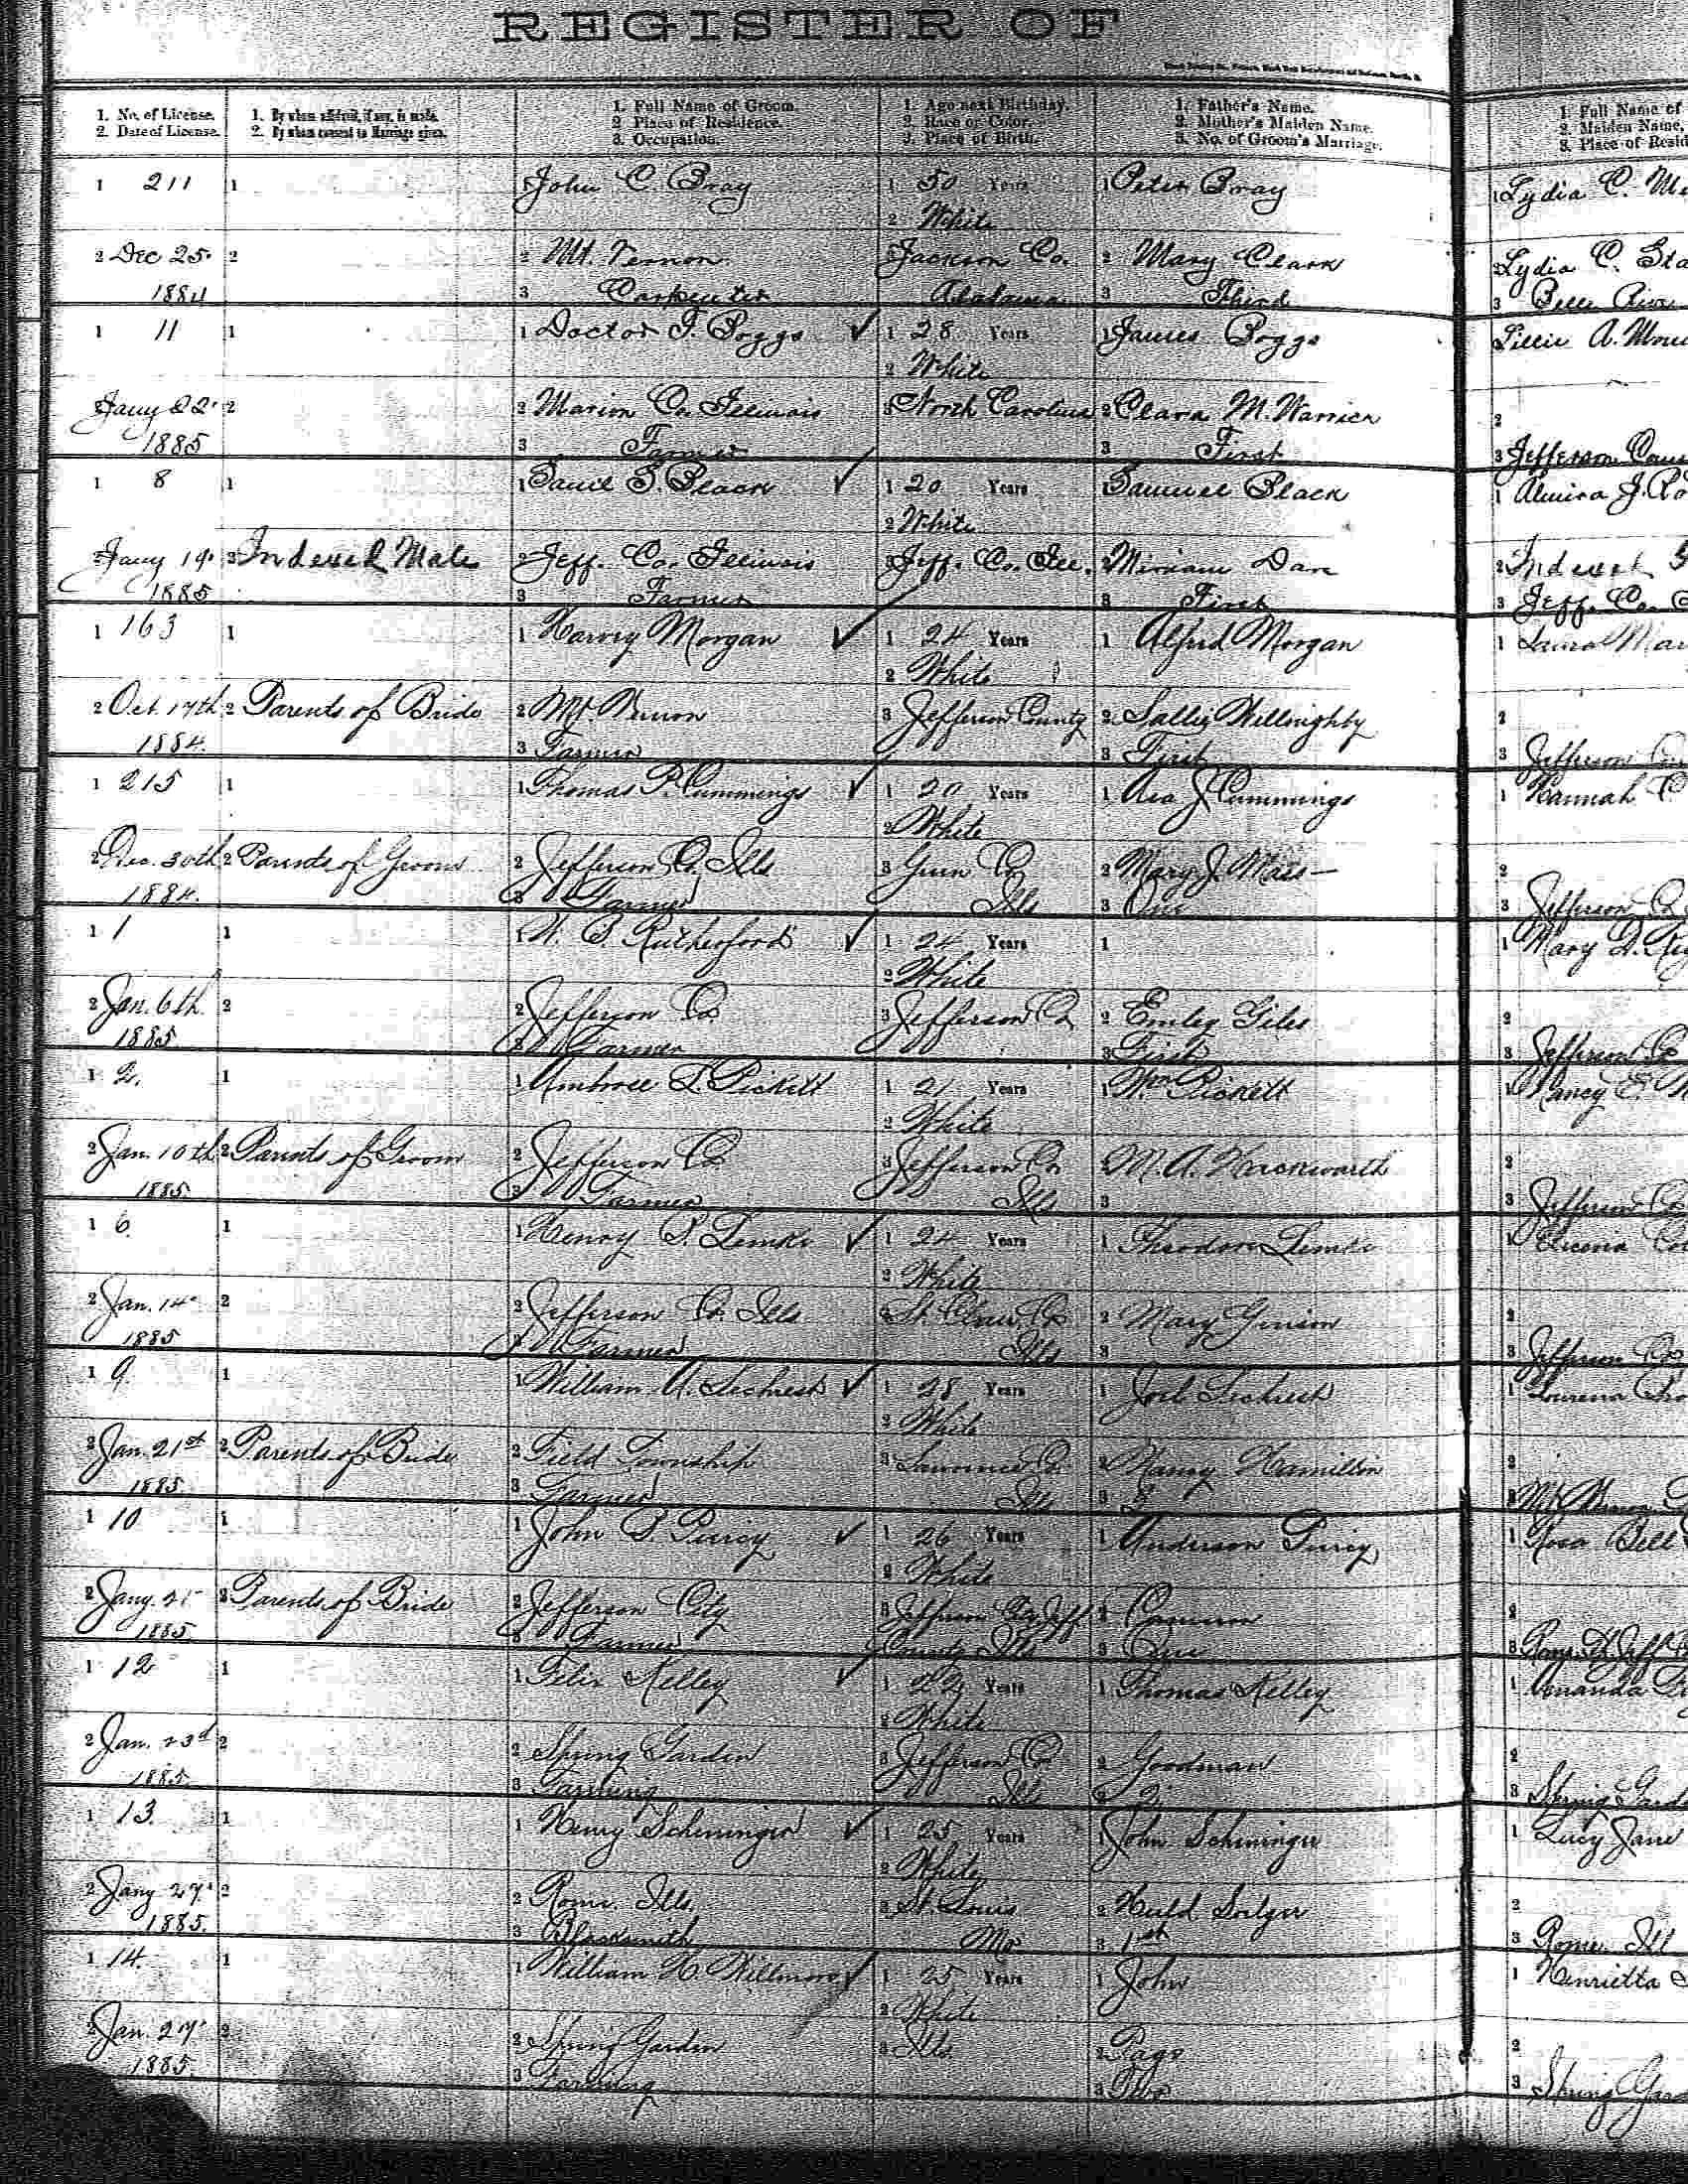 REGISTER OF
1. No. of License. 1. By whom affidavit, if any, is made. 1. Full Name of Groom. 1. Age next Birthday. 1. Father's Name. 1. Full Name of
2. Date of License. 2. By whom consent to Marriage given. 2 Place of Residence. 2. Race or Color. 2. Mother's Maiden Name. 2. Maiden Name,
3. Occupation. 3. Place of Birth. 3. No. of Groom's Marriage. 3. Place of Resid
1 211 1 1 John C. Bray 1 50 Years 1 Peter Bray 1 Lydia C.
2 White
2 Dec 25 2 2 Mt. Vernon 3 Jackson Co. 2 Mary Clark 2 Lydia C. Sta
1884 3 Carpenter Alabama 3 Third 3 Belle Rive
1 11 1 1 Doctor F. Boggs ✓ 1 28 Years 1 James Boggs Lillie A.
2 White
2 Jany 22 2 2 Marion Co. Illinois 3 North Carolina 2 Clara M. Warrick 2
1885 3 Farmer 3 First 3 Jefferson Coun
1 8 1 1 S. Black ✓ 1 20 Years Samuel Black 1 Almira J.
2 White
2 Jany 19 2 Indexed Male 2 Jeff. Co. Illinois 3 Jeff. Co. Ill. 2 Miriam Dare 2 Indexed
1885 3 Farmer 3 First 3 Jeff. Co.
1 163 1 1 Harvey Morgan ✓ 1 24 Years 1 Alfred Morgan 1 Laura
2 White
2 Oct. 17th 2 Parents of Bride 2 Mt. Vernon 3 Jefferson County 2 Sallie Willoughby 2
1884. 3 Farmer 3 First 3 Jefferson
1 215 1 1 Thomas P. Cummings ✓ 1 20 Years 1 Asa J. Cummings 1 Hannah C
2 White
2 Dec. 30th 2 Parents of Groom 2 Jefferson Co. Ills 3 Co. 2 Mary J. 2
1884. 3 Farmer Ills 3 One 3 Jefferson Co
1 1 1 1 W. Rutherford ✓ 1 24 Years 1 1 Mary
2 White
2 Jan. 6th 2 2 Jefferson Co. 3 Jefferson Co. 2 Emley Giles 2
1885 3 Farmer 3 First 3 Jefferson Co
1 2. 1 1 Pickett 1 21 Years 1 Wm. Pickett 1 Nancy E.
2 White
2 Jan. 10th 2 Parents of Groom 2 Jefferson Co 3 Jefferson Co. 2 M. A. 2
1885 3 Farmer Ills 3 3 Jefferson Co
1 6. 1 1 Henry Lemke ✓ 1 24 Years 1 Theodore Lemke 1
2 White
2 Jan. 14 2 2 Jefferson Co. Ills 3 St. Clair Co 2 Mary 2
1885 3 Farmer Ills 3 3 Jefferson Co
1 9. 1 1 William A. Sechrest ✓ 1 28 Years 1 Joel Sechrest 1
2 White
2 Jan. 21st 2 Parents of Bride 2 Field Township 3 Lawrence Co. 2 Nancy 2
1885 3 Farmer Ills 3 3 Mt Vernon
1 10 1 1 John Piercy ✓ 1 26 Years 1 Anderson Piercy 1 Rosa Bell
2 White
2 Jany. 21 2 Parents of Bride 2 Jefferson City 3 Jefferson City Jeff 2 Cameron 2
1885. 3 Farmer County Ills 3 One 3 Rome
1 12 1 1 Felix Kelley ✓ 1 22 Years 1 Thomas Kelley 1 Amanda
2 White
2 Jan. 23d 2 2 Spring Garden 3 Jefferson Co. 2 Goodman 2
1885. 3 Farming Ill 3 2 3 Spring Gard
1 13. 1 1 Henry Schminger ✓ 1 25 Years 1 John Schminger 1 Lucy Jane
2 White
2 Jany 27 2 2 Rome. Ills. 3 St. Louis 2 2
1885. 3 Blacksmith Mo 3 1st 3 Rome Ill
1 14. 1 1 William H. Willmore ✓ 1 25 Years 1 John 1 Henrietta
2 White
2 Jan. 27 2 2 Spring Garden 3 Ills. 2 Page 2
1885. 3 Farming 3 Two 3 Spring Gar